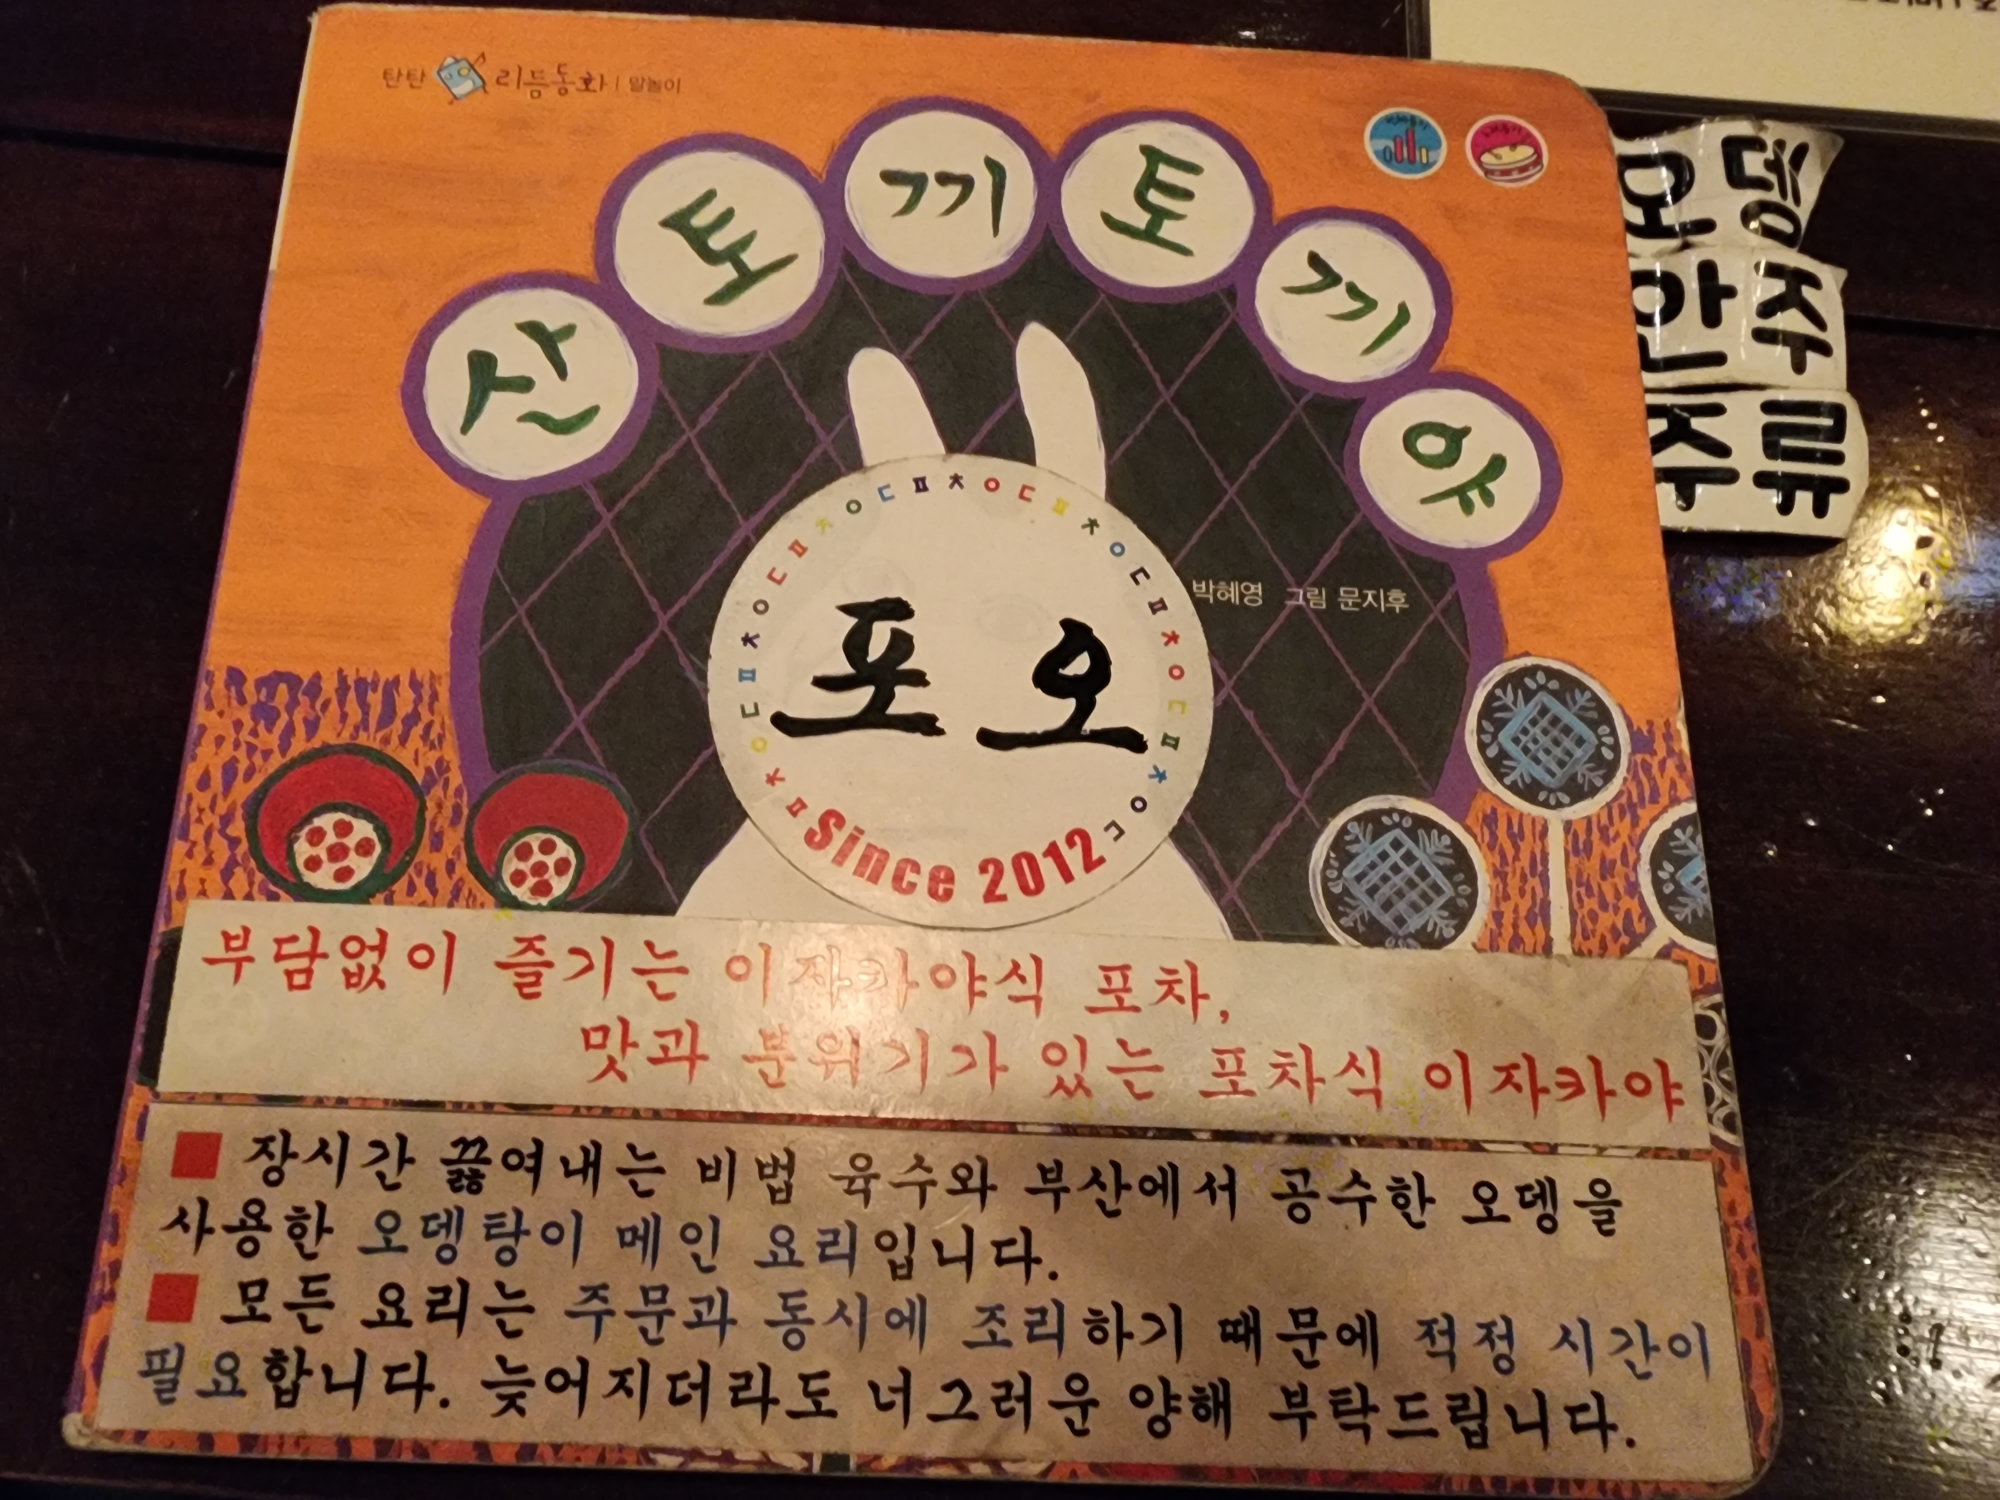 탄탄 리듬동화 | 말놀이
산토끼 토끼야
박혜영 그림 문지후
오뎅
안주
주류
ㅇㄷㅍㅊㅇㄷㅍㅊㅇㄷㅍㅊㅇㄷㅍㅊㅇㄷ
포 오
Since 2012
부담없이 즐기는 이자카야식 포차,
맛과 분위기가 있는 포차식 이자카야
■ 장시간 끓여내는 비법 육수와 부산에서 공수한 오뎅을
사용한 오뎅탕이 메인 요리입니다.
■ 모든 요리는 주문과 동시에 조리하기 때문에 적정 시간이
필요합니다. 늦어지더라도 너그러운 양해 부탁드립니다.